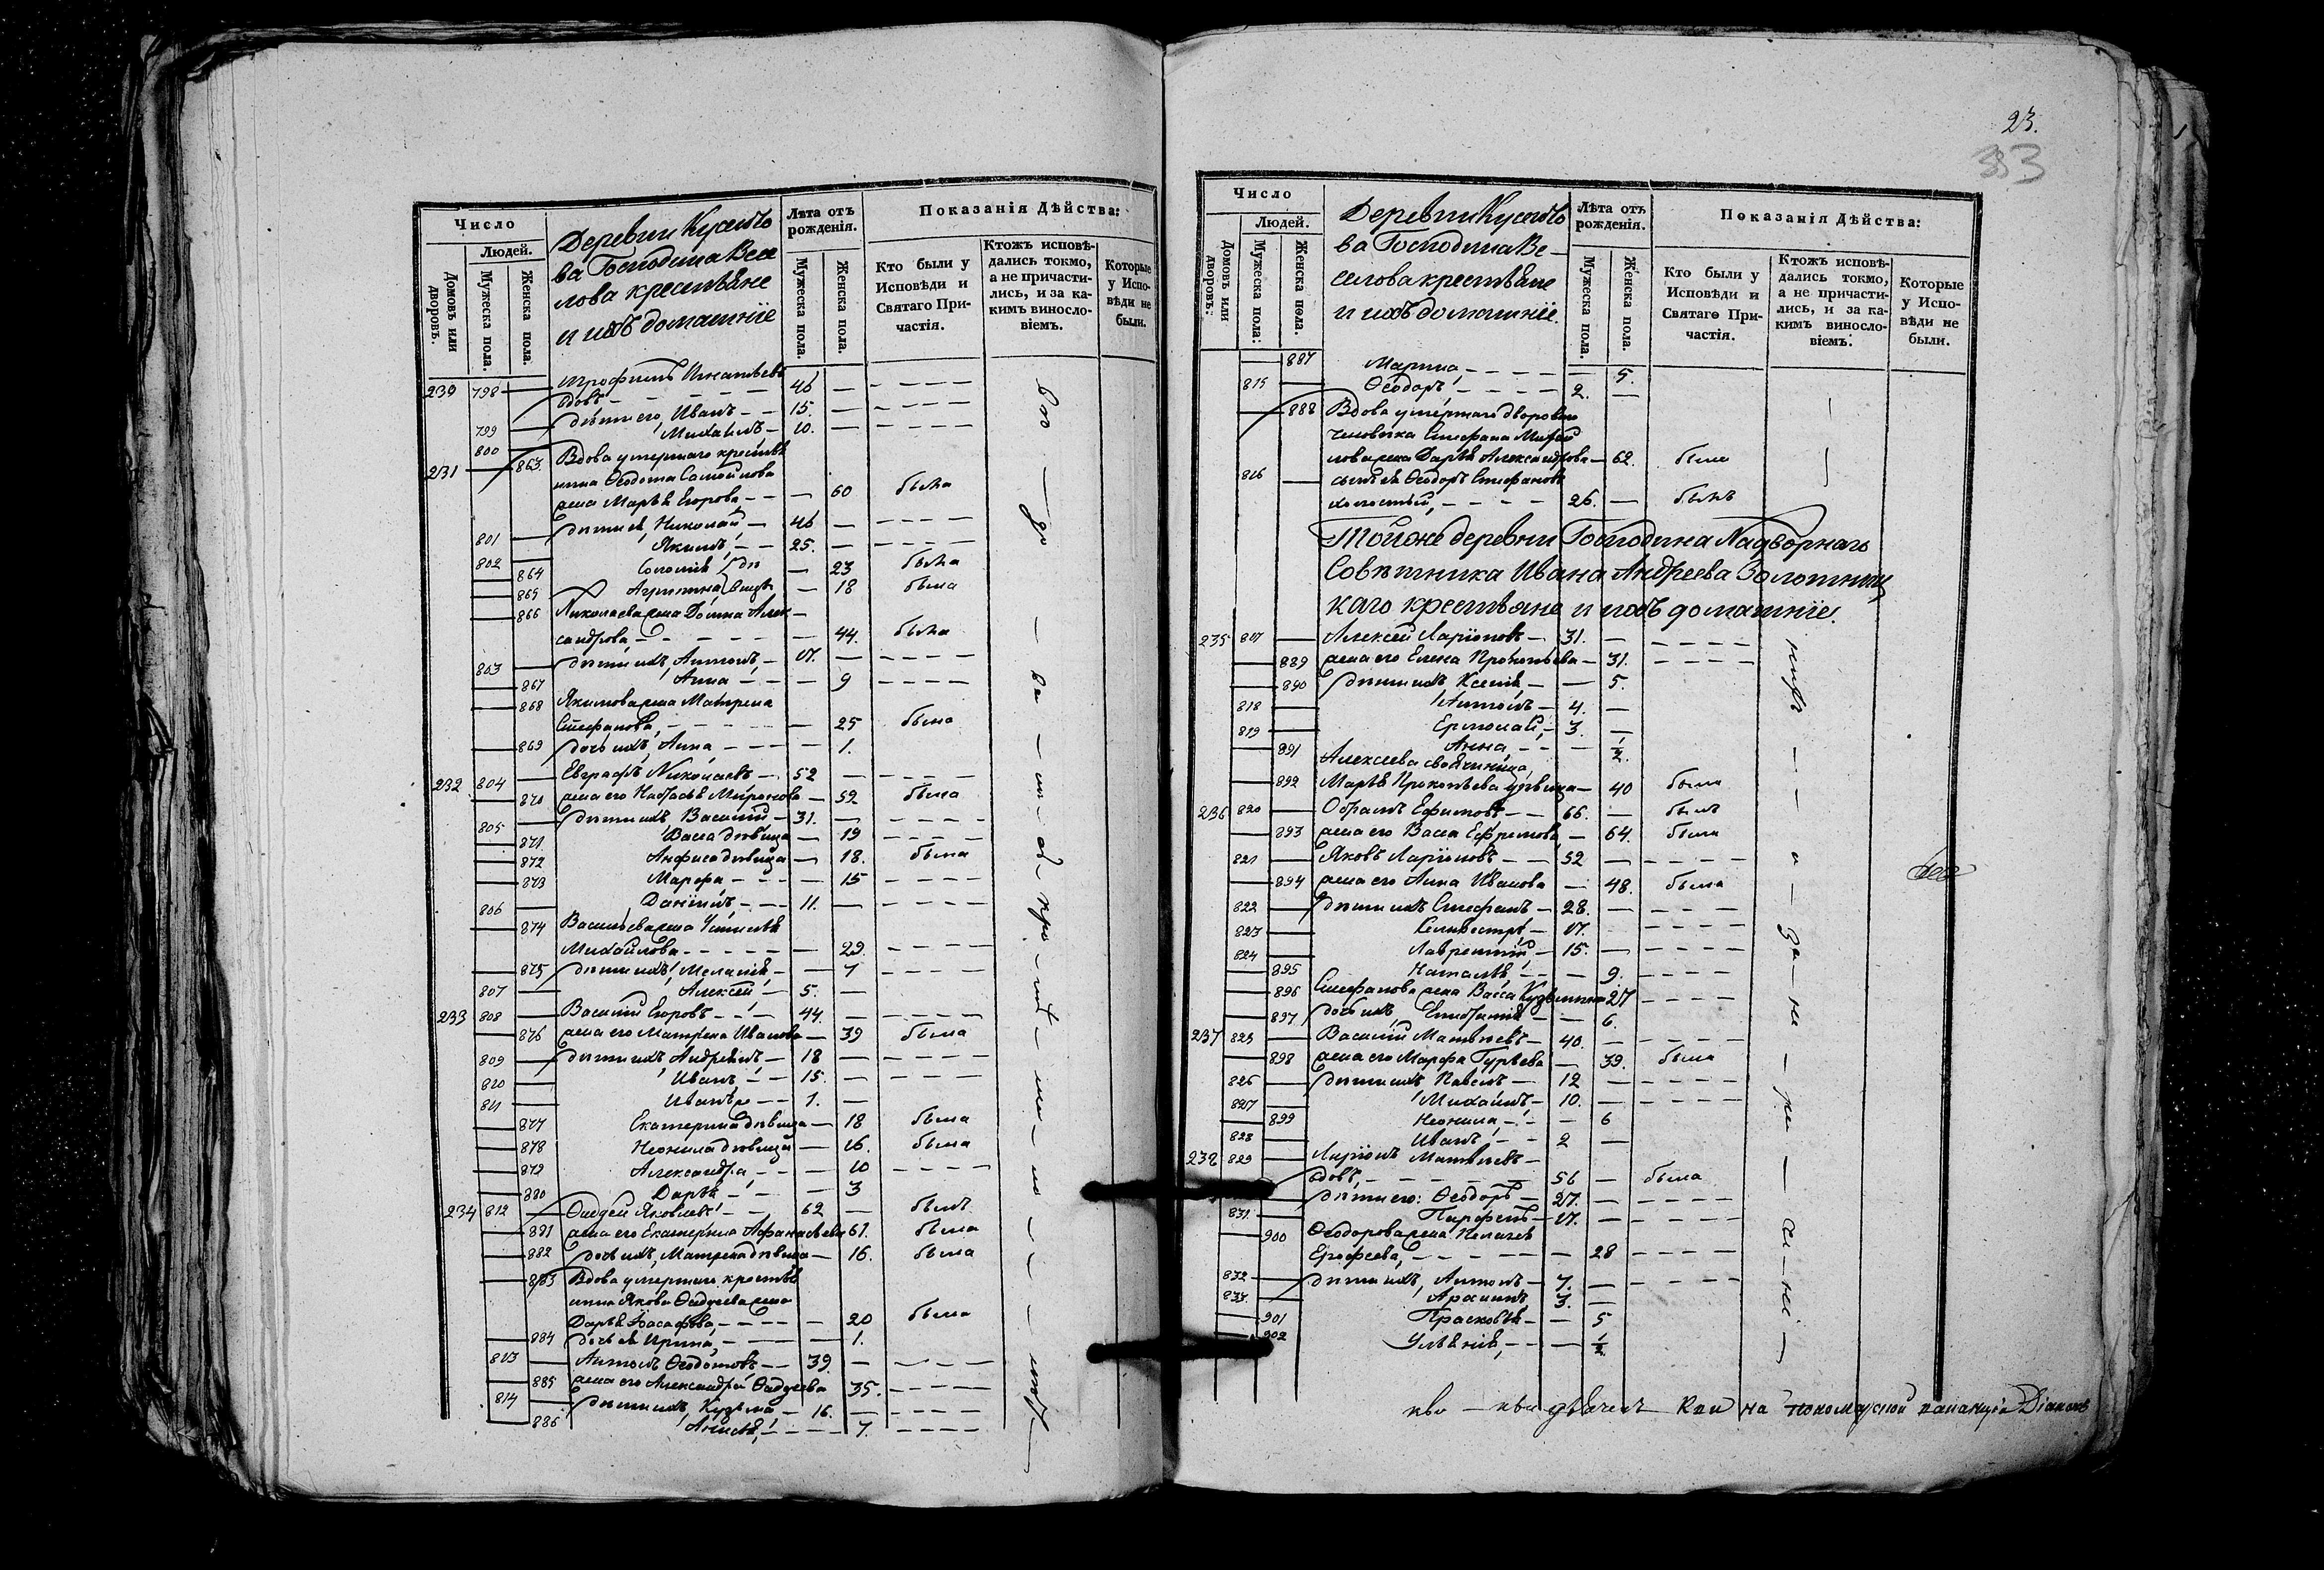 Число
Людей.
Домовъ или дворовъ.
Мужеска пола.
Женска пола.
Деревни
ва Господина Весе
лова крестьяне
и ихъ домашніе
Лѣта отъ рожденія.
Мужеска пола.
Женска пола.
Показанія Дѣйства:
Кто были у Исповѣди и Святаго Причастія.
Ктожъ исповѣдались токмо, а не причастились, и за какимъ винословіемъ.
Которые у Исповѣди не были.
230 798 Трофимъ Игнатьевъ
вдовъ 46
799 дѣти его, Иванъ 15.
800 Михаилъ 10.
231 863 Вдова умершаго крестья
нина Ѳеодота Самойлова
жена Марья Егорова 60 была
801 дѣти ея, Николай 46
802 Якимъ 25.
864 Соломія 23 была
865 18 была
866 Николаева жена Домна Алек
сандрова 44. была
803 дѣти ихъ, Антонъ 17.
867 Анна 9
868 Якимова жена Матрена
Стефанова 25 была
869 дочь ихъ, Анна 1.
232 804 Евграфъ Николаевъ 52
870 жена его Настасья Миронова 52 была
805 дѣти ихъ Василій 31.
871 Васса дѣвица 19
872 Анфиса дѣвица 18. была
873 Марфа 15
806 Даніилъ 11.
874 Васильева жена Устинья
Михайлова 29.
875 дѣти ихъ, Меланія 7
807 Алексѣй 5.
233 808 Василій Егоровъ 44.
876 жена его Матрена Иванова 39 была
809 дѣти ихъ, Андреянъ 18
810 Иванъ 15.
811 Иванъ 1.
877 Екатерина дѣвица 18 была
878 Неонила дѣвица 16. была
879 Александра 10
880 Дарья 3
234 812 Ѳадей Яковлевъ 62 былъ
881 жена его Екатерина Афанасьева 61. была
882 дочь ихъ, Матрена дѣвица 16. была
883 Вдова умершаго крестья
нина Якова Ѳадеева жена
Дарья 20 была
884 дочь ея Ирина 1.
813 Антонъ Ѳеодотовъ 39.
885 жена его Александра Ѳадеева 35.
814 дѣти ихъ, Кузьма 16.
886 Анисья 7.
23.
Число
Людей.
Домовъ или дворовъ:
Мужеска пола:
Женска пола.
Деревни
ва Господина Ве-
селова крестьяне
и ихъ домашніе.
Лѣта отъ рожденія.
Мужеска пола.
Женска пола.
Показанія Дѣйства:
Кто были у Исповѣди и Святаго Причастія.
Ктожъ исповѣдались токмо, а не причастились, и за какимъ винословіемъ.
Которые у Исповѣди не были.
887 Марина 5.
815 Ѳеодоръ 2.
888 Вдова умершаго двороваго
человѣка Стефана
жена Дарья Александрова 62. была
816 сынъ ея Ѳеодоръ Стефановъ
холостый 26. былъ
Той же деревни Господина Надворнаго
Совѣтника Ивана Андреева Золотниц
каго крестьяне и ихъ домашніе.
235 817 Алексѣй Ларіоновъ 31.
889 жена его Елена Прокопьева 31.
890 дѣти ихъ Ксенія 5.
818 Антонъ 4.
819 Ермолай 3.
891 Анна ½.
Алексеева свояченица
892 Марья Прокопьева дѣвица 40 была
236 820 Обрамъ Ефимовъ 66. былъ
893 жена его Васса Ефремова 64. была
821 Яковъ Ларіоновъ 52
894 жена его Анна Иванова 48. была
822 дѣти ихъ Стефанъ 28.
823 Селивестръ 17.
824 Лаврентій 15.
895 Наталья 9.
896 Стефанова жена Васса Кузьмина 27
897 дочь ихъ, 6.
237 825 Василій Матвѣевъ 40.
898 жена его Марфа Гурьева 39. была
826 дѣти ихъ Павелъ 12
827 Михаилъ 10.
899 Неонила 6
828 Иванъ 2
238 829 Ларіонъ Матвѣевъ
вдовъ 56 была
дѣти его: Ѳеодоръ 27.
831 Парфенъ 17.
900 Ѳеодорова жена Пелагея
Ерофеева 28
832 дѣти ихъ, Антонъ 7.
833 3.
901 Прасковья 5
902 Ульянія ½